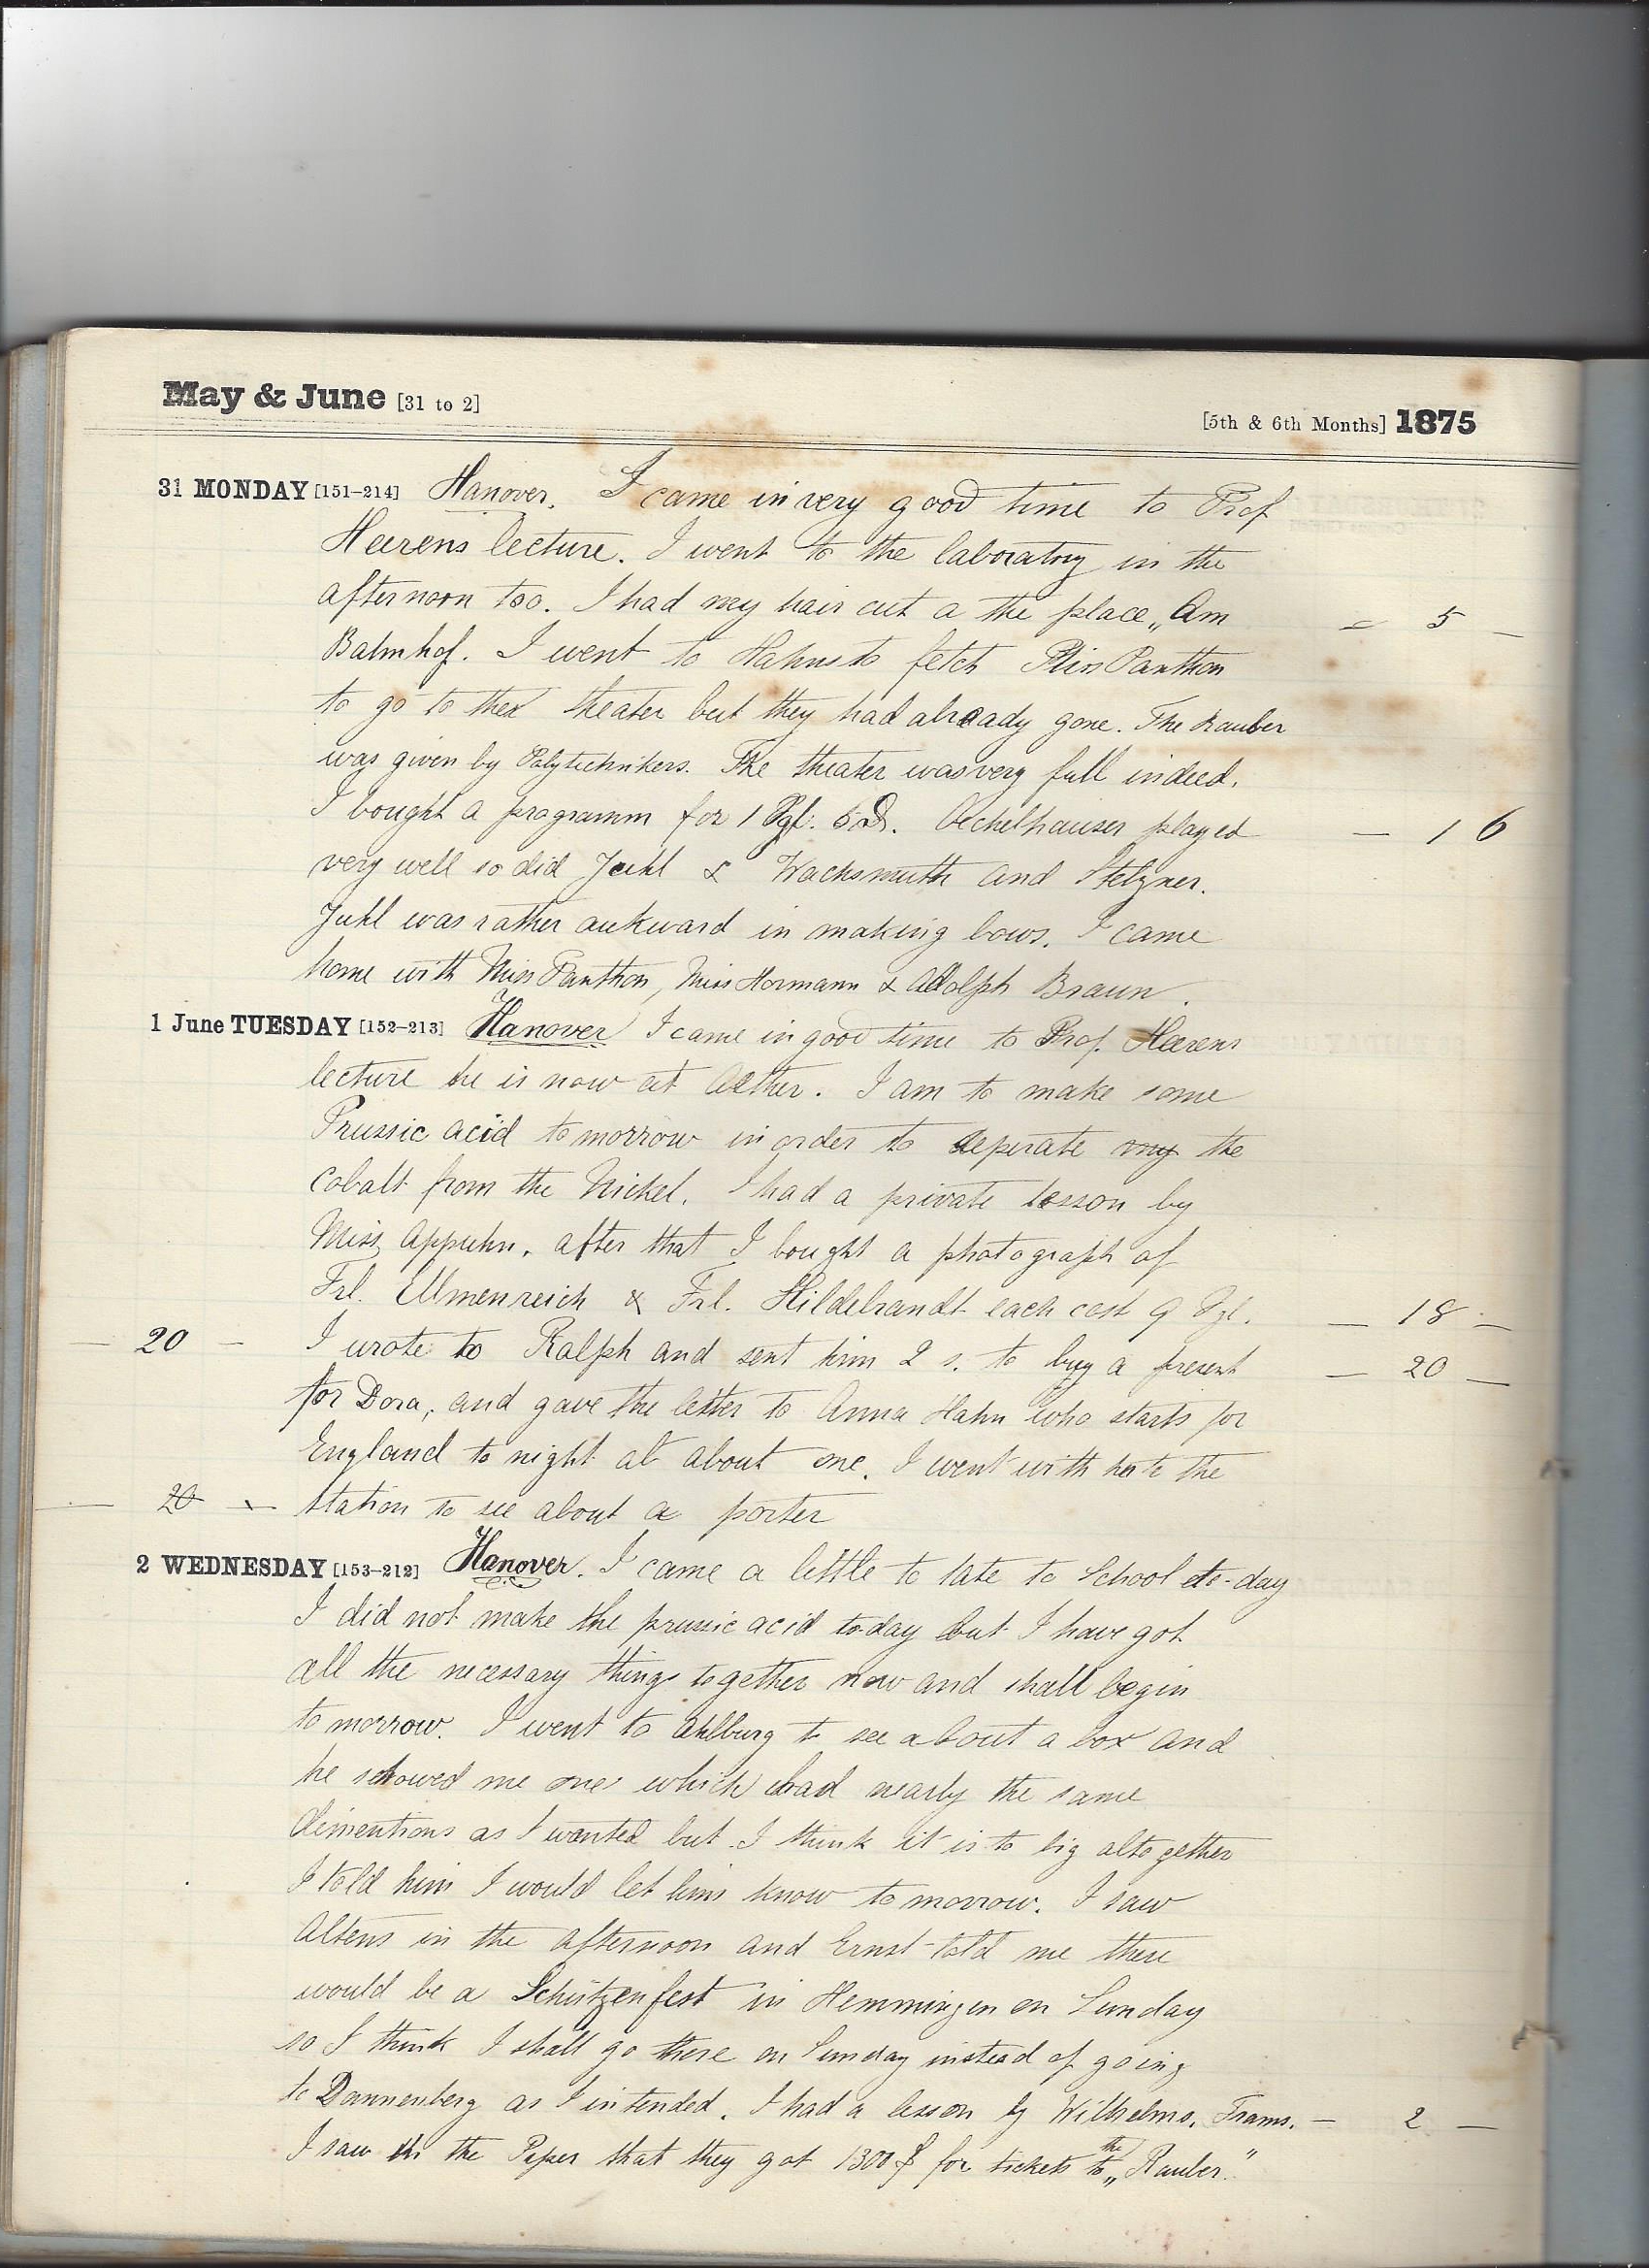 May & June [31 to 2]
[5th & 6th Months] 1875
31 MONDAY [151-214] Hanover. I came in very good time to Prof
Heerens lecture. I went to the laboratory in the
afternoon too. I had my hair cut a the place „Am — 5 —
Bahnhof. I went to Hahns to fetch Miss Panthon
to go to the theater but they had already gone. The Rauber
was given by Polytechnikers. The theater was very full indeed.
I bought a programm for 1 Sgl. 6 d. Oechelhauser played — 1 6
very well so did Juhl & Wachsmuth and Stelzner.
Juhl was rather aukward in making bows. I came
home with Miss Panthon, Miss Hormann & Adolph Braun.
1 June TUESDAY [152-213] Hanover I came in good time to Prof. Heerens
lecture he is now at Aether. I am to make some
Prussic acid to morrow in order to seperate my the
cobalt from the Nickel. I had a private lesson by
Miss Appuhn. after that I bought a photograph of
Frl. Ellmenreich & Frl. Hildebrandt each cost 9 Sgl. — 18 —
— 20 — I wrote to Ralph and sent him 2 s. to buy a present — 20 —
for Dora, and gave the letter to Anna Hahn who starts for
England to night at about one. I went with her to the
— 20 — station to see about a porter
2 WEDNESDAY [153-212] Hanover. I came a little to late to School to-day
I did not make the prussic acid to-day but I have got
all the necessary things together now and shall begin
to morrow. I went to Ahlburg to see about a box and
he showed me ones which had nearly the same
dimentions as I wanted but I think it is to big altogether
I told him I would let him know to morrow. I saw
Altens in the afternoon and Ernst told me there
would be a Schützenfest in Hemmingen on Sunday
so I think I shall go there on Sunday instead of going
to Dannenberg as I intended. I had a lesson by Wilhelms. Trams. — 2 —
I saw in the Paper that they got 1300 for tickets to the „Rauber."